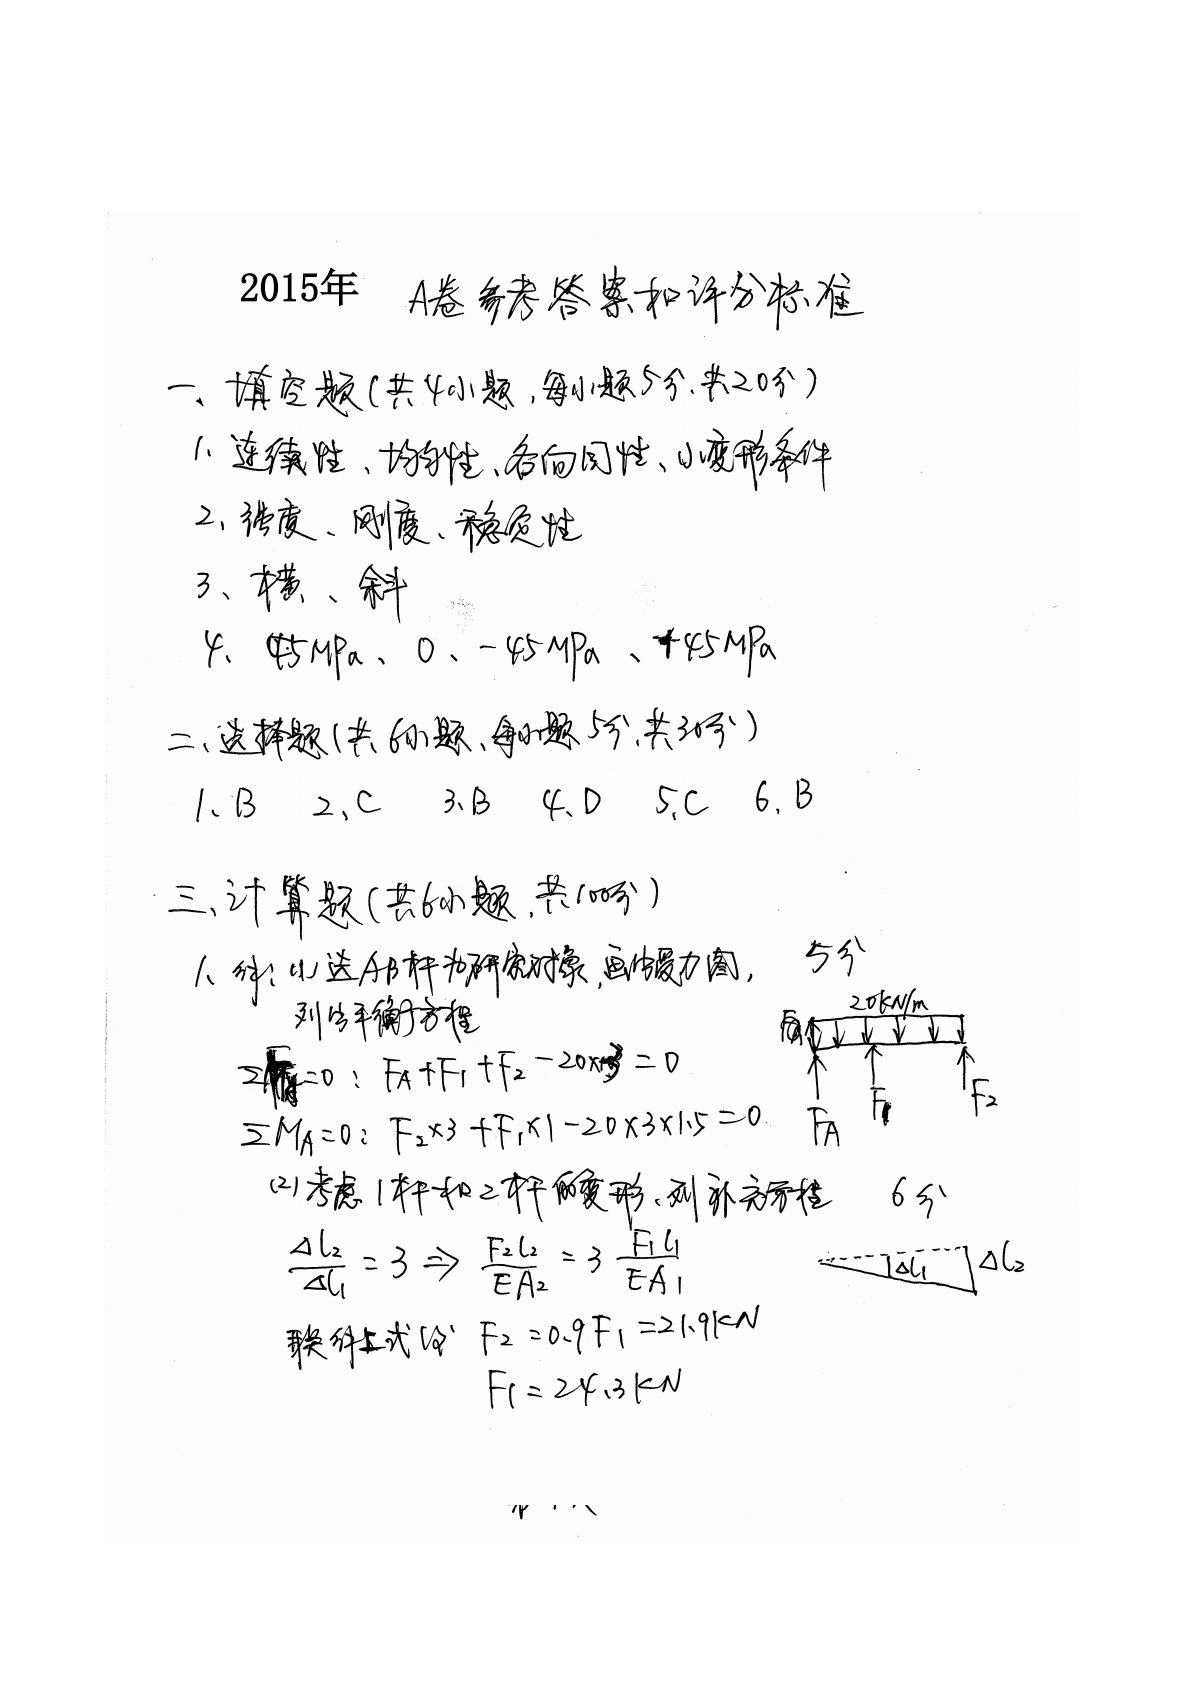 2015年 A卷参考答案和评分标准
一、填空题(共4小题,每小题5分,共20分)
1、连续性、均匀性、各向同性、小变形条件
2、强度、刚度、稳定性
3、横、斜
4、45MPa、0、-45MPa、+45MPa
二、选择题(共6小题、每小题5分,共30分)
1、B 2、C 3、B 4、D 5、C 6、B
三、计算题(共6小题,共100分)
1、解:(1)选AB杆为研究对象,画出受力图, 5分
列出平衡方程
20kN/m
=0: FA+F1+F2-20×3=0
F1 F2
FA
ΣMA=0: F2×3+F1×1-20×3×1.5=0
(2)考虑1杆和2杆的变形、列补充方程 6分
Δl2/Δl1=3⇒F2l2/EA2=3 F1l1/EA1
Δl1 Δl2
联解上式得 F2=0.9F1=21.9kN
F1=24.3kN